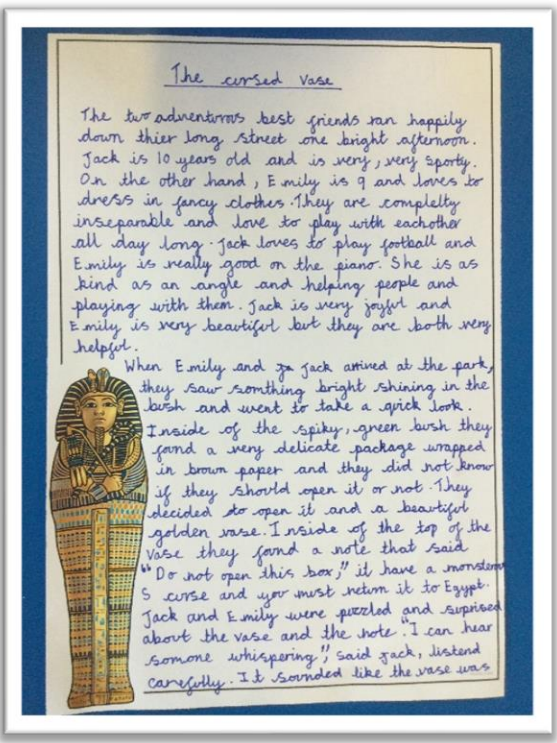 The cursed vase
The two adventurous best friends ran happily
down thier long street one bright afternoon.
Jack is 10 years old and is very, very sporty.
On the other hand, Emily is 9 and loves to
dress in fancy clothes. They are completty
inseparable and love to play with eachother
all day long. Jack loves to play football and
Emily is really good on the piano. She is as
kind as an angle and helping people and
playing with them. Jack is very joyful and
Emily is very beautiful but they are both very
helpful.
When Emily and Jack arrived at the park,
they saw somthing bright shining in the
bush and went to take a quick look.
Inside of the spiky, green bush they
found a very delicate package wrapped
in brown paper and they did not know
if they should open it or not. They
decided to open it and a beautiful
golden vase. Inside of the top of the
vase they found a note that said
"Do not open this box," it have a monsterou
s curse and you must return it to Egypt.
Jack and Emily were puzzled and suprised
about the vase and the note. "I can hear
somone whispering", said Jack, listend
carefully. It sounded like the vase was